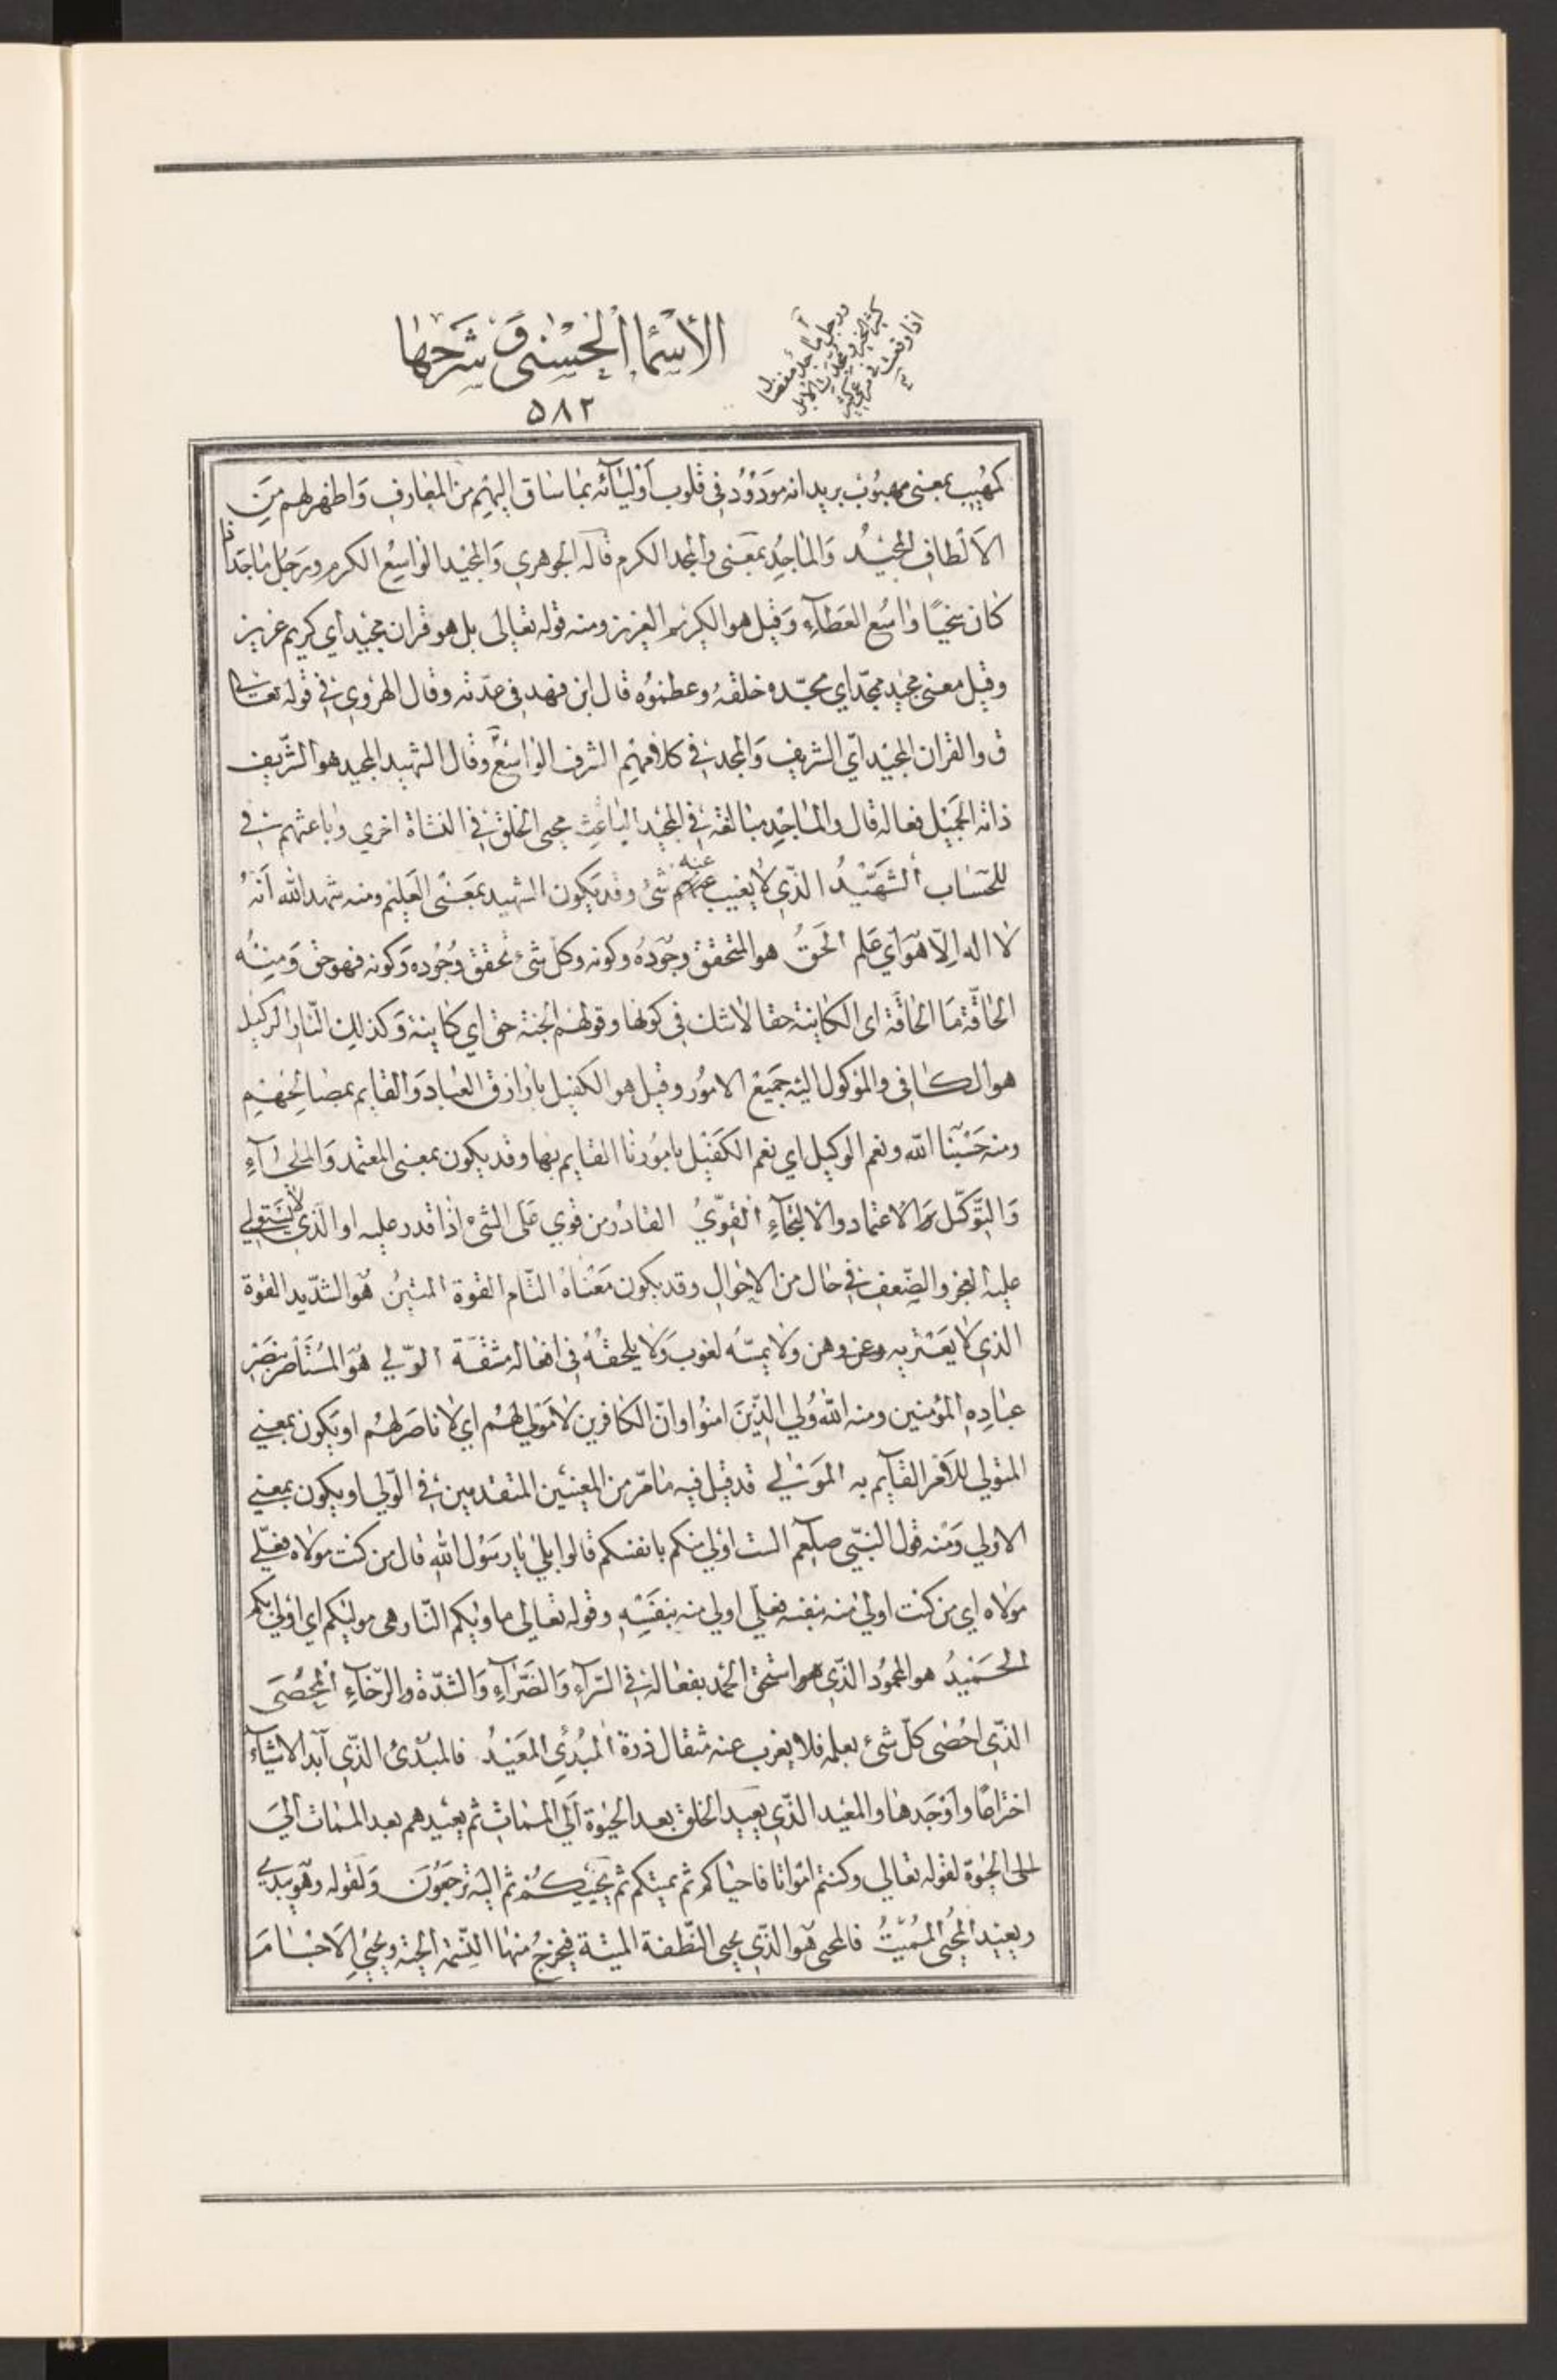 الأسماء الحسنى و شرحها
۵۸۲
ورجل ماجد مفضال
كثير الخير ومجدت الابل
اذا وقعت في مرعى كثير
كمهيب بمعنى مهيوب يريد انه مودود في قلوب أوليائه بما ساق اليهم من المعارف واظهر لهم من
الالطاف المجيد والماجد بمعنى والمجد الكرم قاله الجوهري والمجيد الواسع الكرم ورجل ماجد اذا
كان سخيا واسع العطاء وقيل هو الكريم العزيز ومنه قوله تعالى بل هو قران مجيد أي كريم عزيز
وقيل معنى مجيد ممجد اي مجده خلقه وعظموه قال ابن فهد في عدته وقال الهروي في قوله تعالى
ق والقران المجيد أي الشريف والمجد في كلامهم الشرف الواسع وقال الشهيد المجيد هو الشريف
ذاته الجميل فعاله قال والماجد مبالغة في المجد الباعث محيي الخلق في النشاة اخري وباعثهم في
للحساب الشهيد الذي لا يغيب عنه شئ وقد يكون الشهيد بمعنى العليم ومنه شهد الله انه
لا اله الا هو أي علم الحق هو المتحقق وجوده وكونه وكل شئ تحقق وجوده وكونه فهو حق ومنه
الحاقة ما الحاقة اى الكاينة حقا لا شك في كونها وقولهم الجنة حق اي كاينة وكذلك النار الوكيل
هو الكافي والموكول اليه جميع الامور وقيل هو الكفيل بارزاق العباد والقايم بمصالحهم
ومنه حسبنا الله ونعم الوكيل اي نعم الكفيل بامورنا القايم بها وقد يكون بمعنى المعتمد والملجاء
والتوكل الاعتماد والالتجاء القوي القادر من قوي على الشئ اذا قدر عليه او الذي لا يستولي
عليه العجز والضعف في حال من الاحوال وقد يكون معناه التام القوة المتين هو الشديد القوة
الذي لا يعتريه وهن ولا يمسه لغوب ولا يلحقه في افعاله مشقة الولي هو المستاصر بنصر
عباده المؤمنين ومنه الله ولي الذين امنوا وان الكافرين لا مولي لهم اي لا ناصر لهم او يكون بمعني
المتولي للامر القايم به المولي قد قيل فيه ما مر من المعنيين المتقدمين في الولي او يكون بمعني
الاولي ومنه قول النبي صلعم الست اولي منكم بانفسكم قالوا بلي يا رسول الله قال من كنت مولاه فعلي
مولاه اي من كنت اولي منه بنفسه فعلي اولي منه بنفسه وقوله تعالي ماويكم النار هي موليكم اي اولي بكم
الحميد هو المحمود الذي استحق الحمد بفعاله في السراء والضراء والشدة والرخاء المحصي
الذي احصى كل شئ بعلمه فلا يعزب عنه مثقال ذرة المبدئ المعيد فالمبدئ الذي أبدا الاشياء
اختراعا وأوجدها والمعيد الذي يعيد الخلق بعد الحيوة الي الممات ثم يعيدهم بعد الممات الي
الحيوة لقوله تعالي وكنتم امواتا فاحياكم ثم يميتكم ثم يحييكم ثم اليه ترجعون ولقوله وهو يبدي
ويعيد المحيي المميت فالمحيي هو الذي يحيي النطفة الميتة فيخرج منها النسمة الحية ويحيي الاجسام